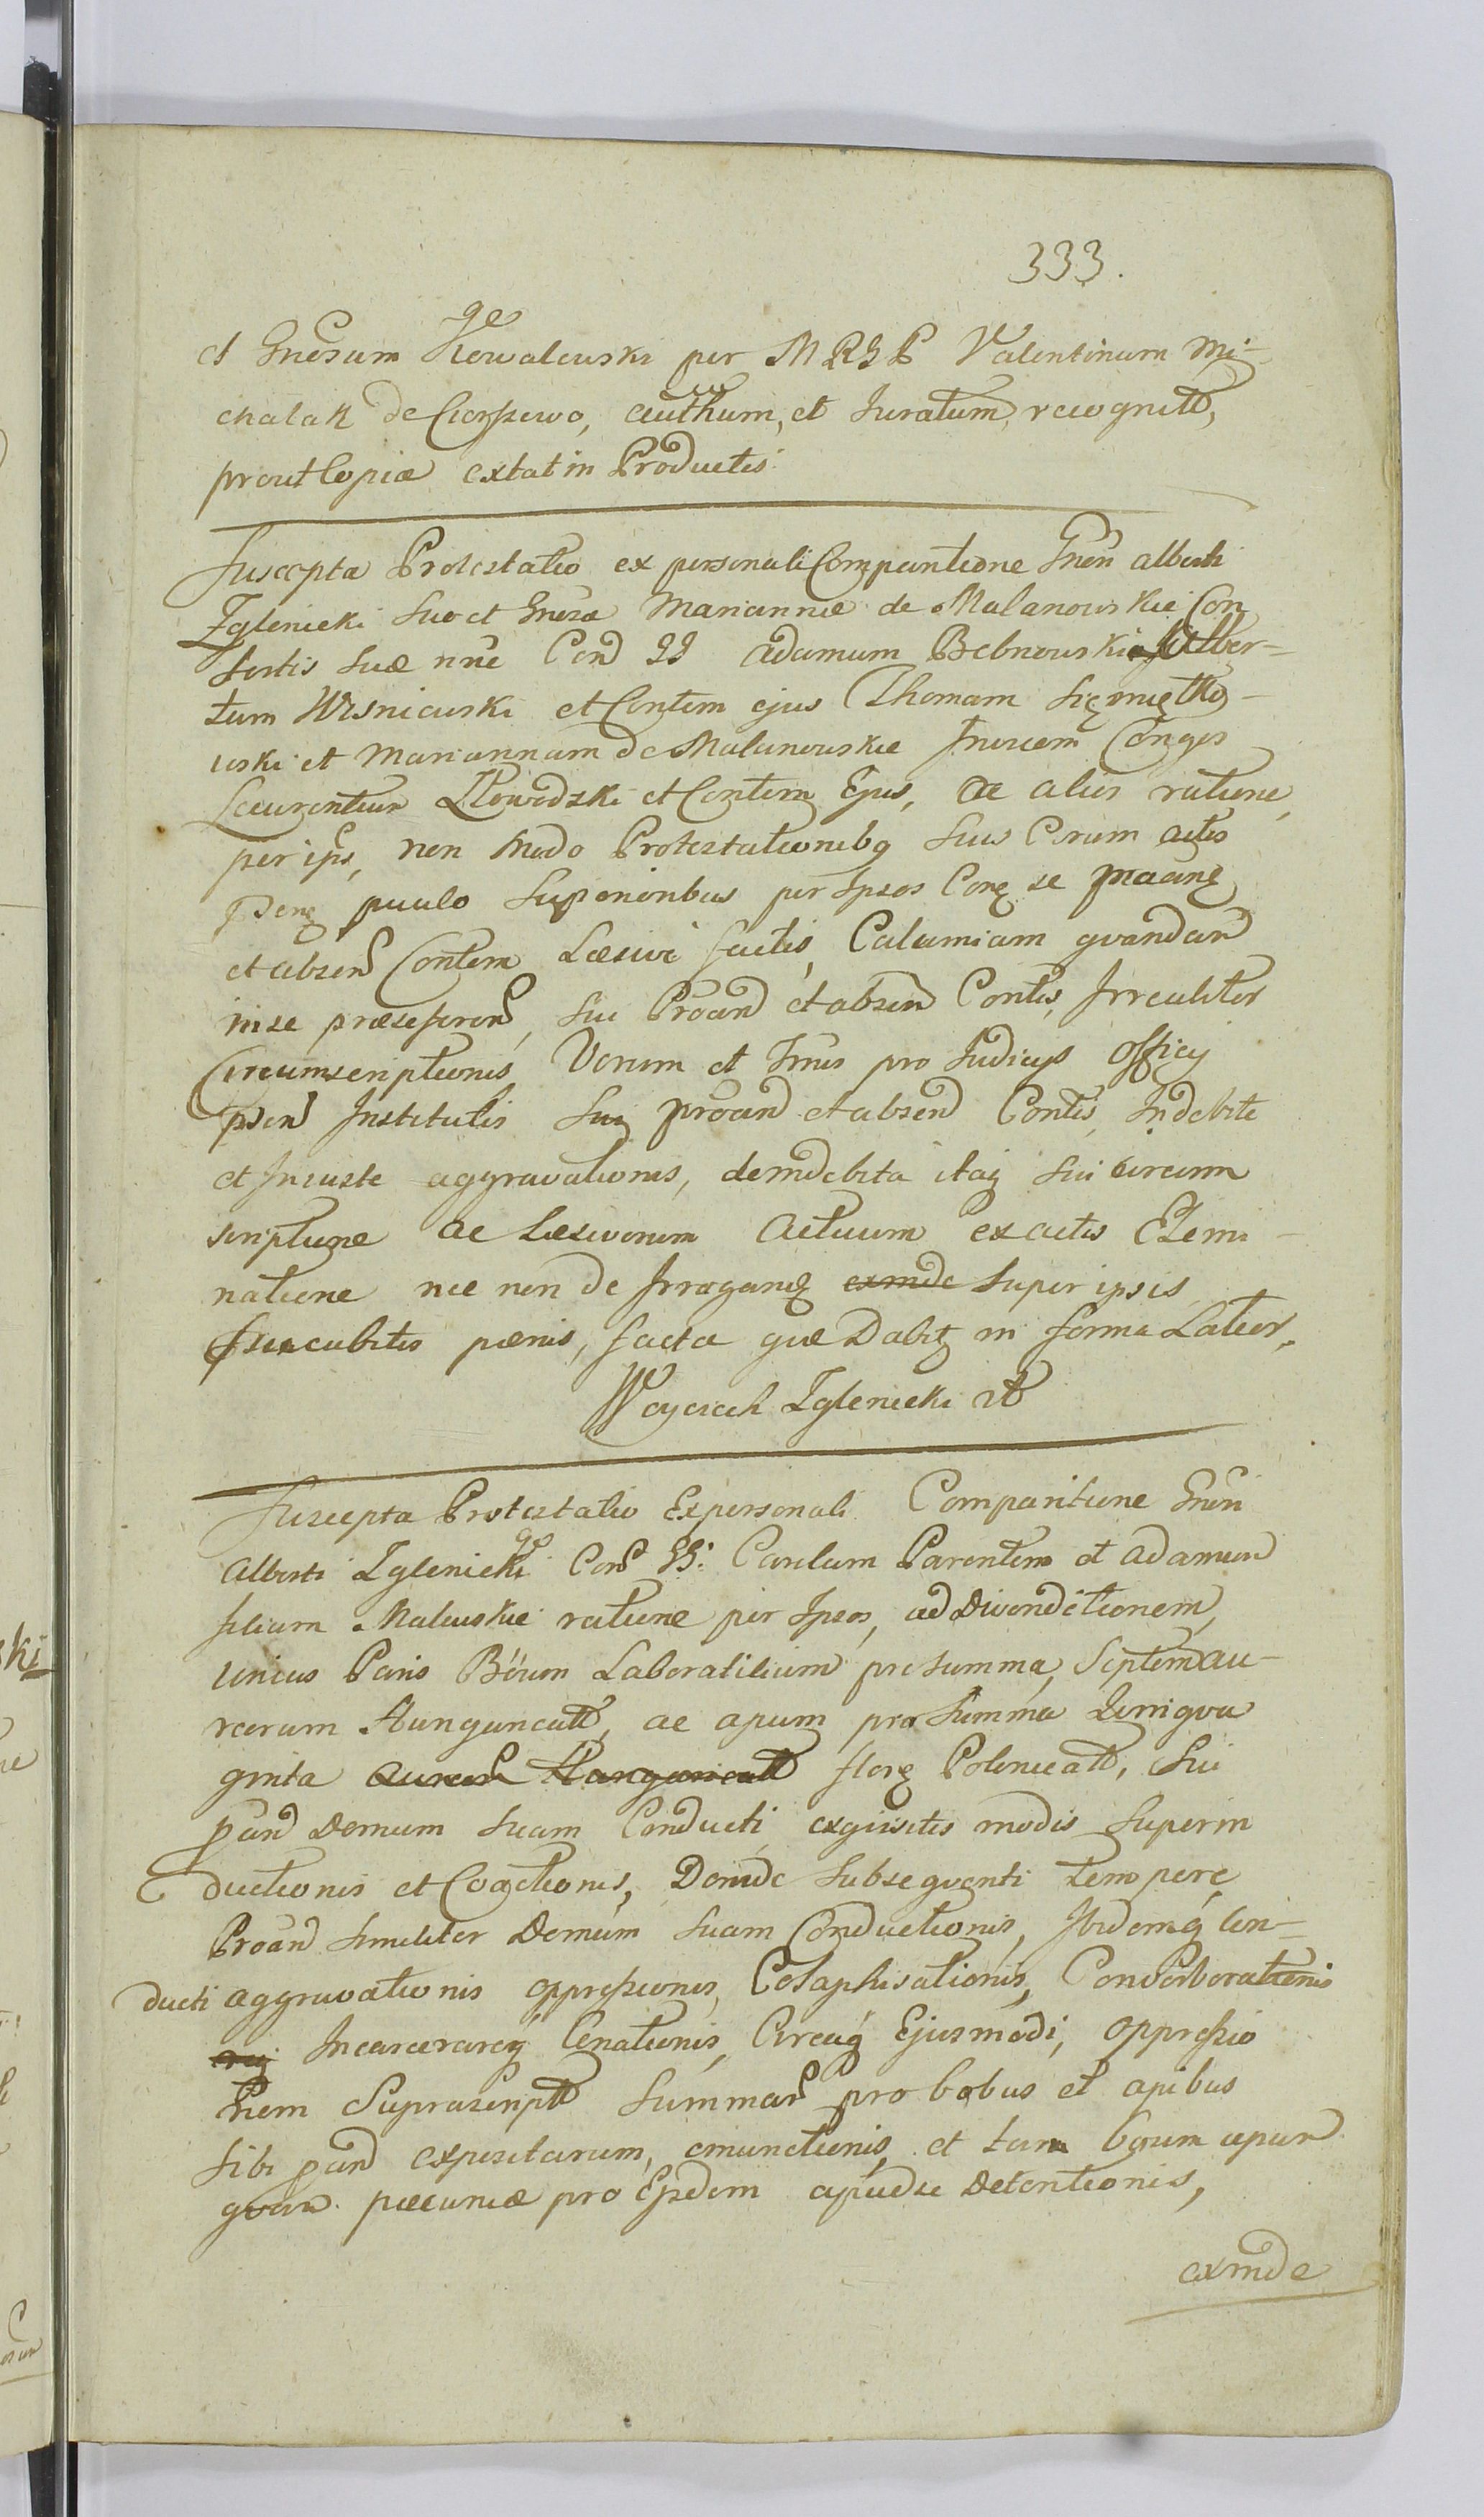 333.
et Gnosum Kowalewski per MRGP Valentinum Mi-
chalak de Ciorszewo, authum, et Juratum, recognitt,
prout Copia extat in Productis.
Suscepta Protestatio ex personali Comparitione Gnen Alberti
Zglenicki suo et Gnosæ Mariannæ de Malanowskie Con
sortis suæ nne Con GG Adamum Bebnowski Alber-
tum Wisniewski et Contem ejus Thomam
wski et Mariannam de Malanowskie Invicem Conges
Laurentium et Contem Ejus, ac alios ratione,
per ips, non modo Protestationibq suis Coram actis
psenq paulo superioribus per Ipsos Conq se
et absen Contem Læsive factis, Calumiam qvandam
in se præseferen, sui Proand et absen Contis, Irrealiter
Circumscriptionis Verum et Imus pro Judicijs Officij
psen Institutis sui proand et absen Contis, Indebite
et Iniuste aggravationis, de indebita itaq sui circum
scriptione ac Læsivorum Actuum ex actis Elemi-
natione nec non de Irroganq exinde super ipsis
pænis, facta quæ Dabitq in forma Latior.
Woyciech Zglenicki
Suscepta Protestatio Ex personali Comparitione Gnen
Alberti Zglenicki Con GG. Carolum Parentem et Adamum
filium Malewskie ratione per Ipsos, ad Divenditionem,
unius Paris Boum Laboratilium pro summa, Septem au-
reorum Hungaricatt, ac apum pro Summa
ginta aureor Hungaricatt flor Polonicatt, sui
pand Domum suam Conducti exqvisitis modis superin
ductionis et Coactionis, Deinde subseqventi tempore
Proand similiter Domum suam Conductionis, Ibidemq Con-
ducti aggravationis oppressionis, Colaphisationis, Converberationis
Incarcerareq Conationis, Circaq Ejusmodi, oppressio
nem Suprascriptt Summar pro bobus et apibus
sibi pand expositarum, emunctionis, et tam boum apum
qvam pæcuniæ pro Eisdem apud se Detentionis,
exinde